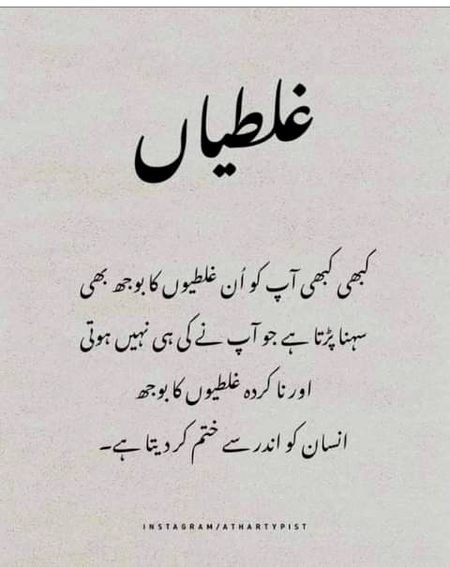 غلطیاں
کبھی کبھی آپ کو اُن غلطیوں کا بوجھ بھی
سہنا پڑتا ہے جو آپ نے کی ہی نہیں ہوتی
اور نا کردہ غلطیوں کا بوجھ
انسان کو اندر سے ختم کر دیتا ہے۔
INSTAGRAM/ATHARTYPIST